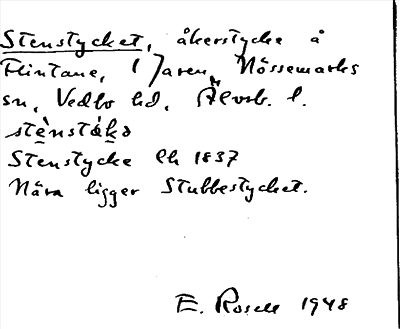 Stenstycket, åkerstycke å
Flintane, 1 Jaren, Nössemarks
sn, Vedbo hd, Älvsb. l.
stènstákə
Stenstycke Lh 1837
Nära ligger Stubbestycket.
E. Rosell 1948